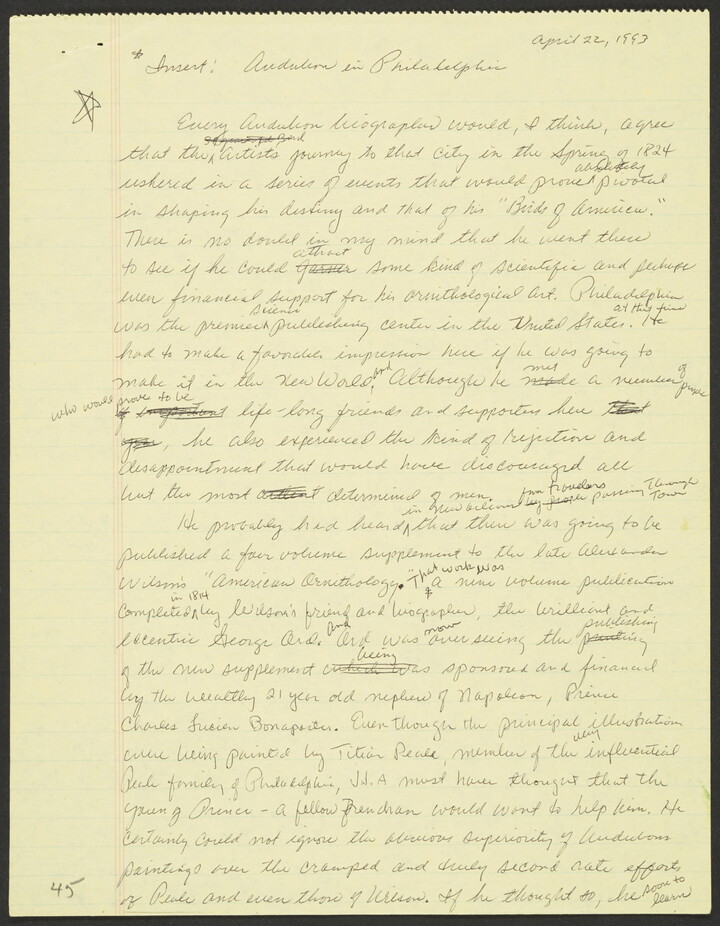 April 22, 1993
* Insert: Audubon in Philadelphia
Every Audubon biographer would, I think, agree
that the Artists journey to that city in the Spring of 1824
ushered in a series of events that would prove absolutely pivotal
in shaping his destiny and that of his "Birds of America."
There is no doubt in my mind that he went there
to see if he could attract some kind of scientific and perhaps
even financial support for his ornithological art. Philadelphia
was the premier science publishing center in the United States at this time. He
had to make a favorable impression here if he was going to
make it in the New World, and Although he met a number of people
who would prove to be life-long friends and supporters here
, he also experienced the kind of rejection and
disappointment that would have discouraged all
but the most determined of men.
He probably had heard in New Orleans from travelers passing through town that there was going to be
published a four volume supplement to the late Alexander
Wilson's "American Ornithology." That work was * a nine volume publication
completed in 1814 by Wilson's friend and biographer, the brilliant and
eccentric George Ord. And Ord was now overseeing the publishing
of the new supplement being sponsored and financed
by the wealthy 21 year old nephew of Napoleon, Prince
Charles Lucien Bonaparte. Even though the principal illustrations
were being painted by Titian Peale, member of the very influential
Peale family of Philadelphia, JJA must have thought that the
young Prince - a fellow Frenchman would want to help him. He
certainly could not ignore the obvious superiority of Audubons
paintings over the cramped and truly second rate efforts
of Peale and even those of Wilson. If he thought so, he soon to learn
45